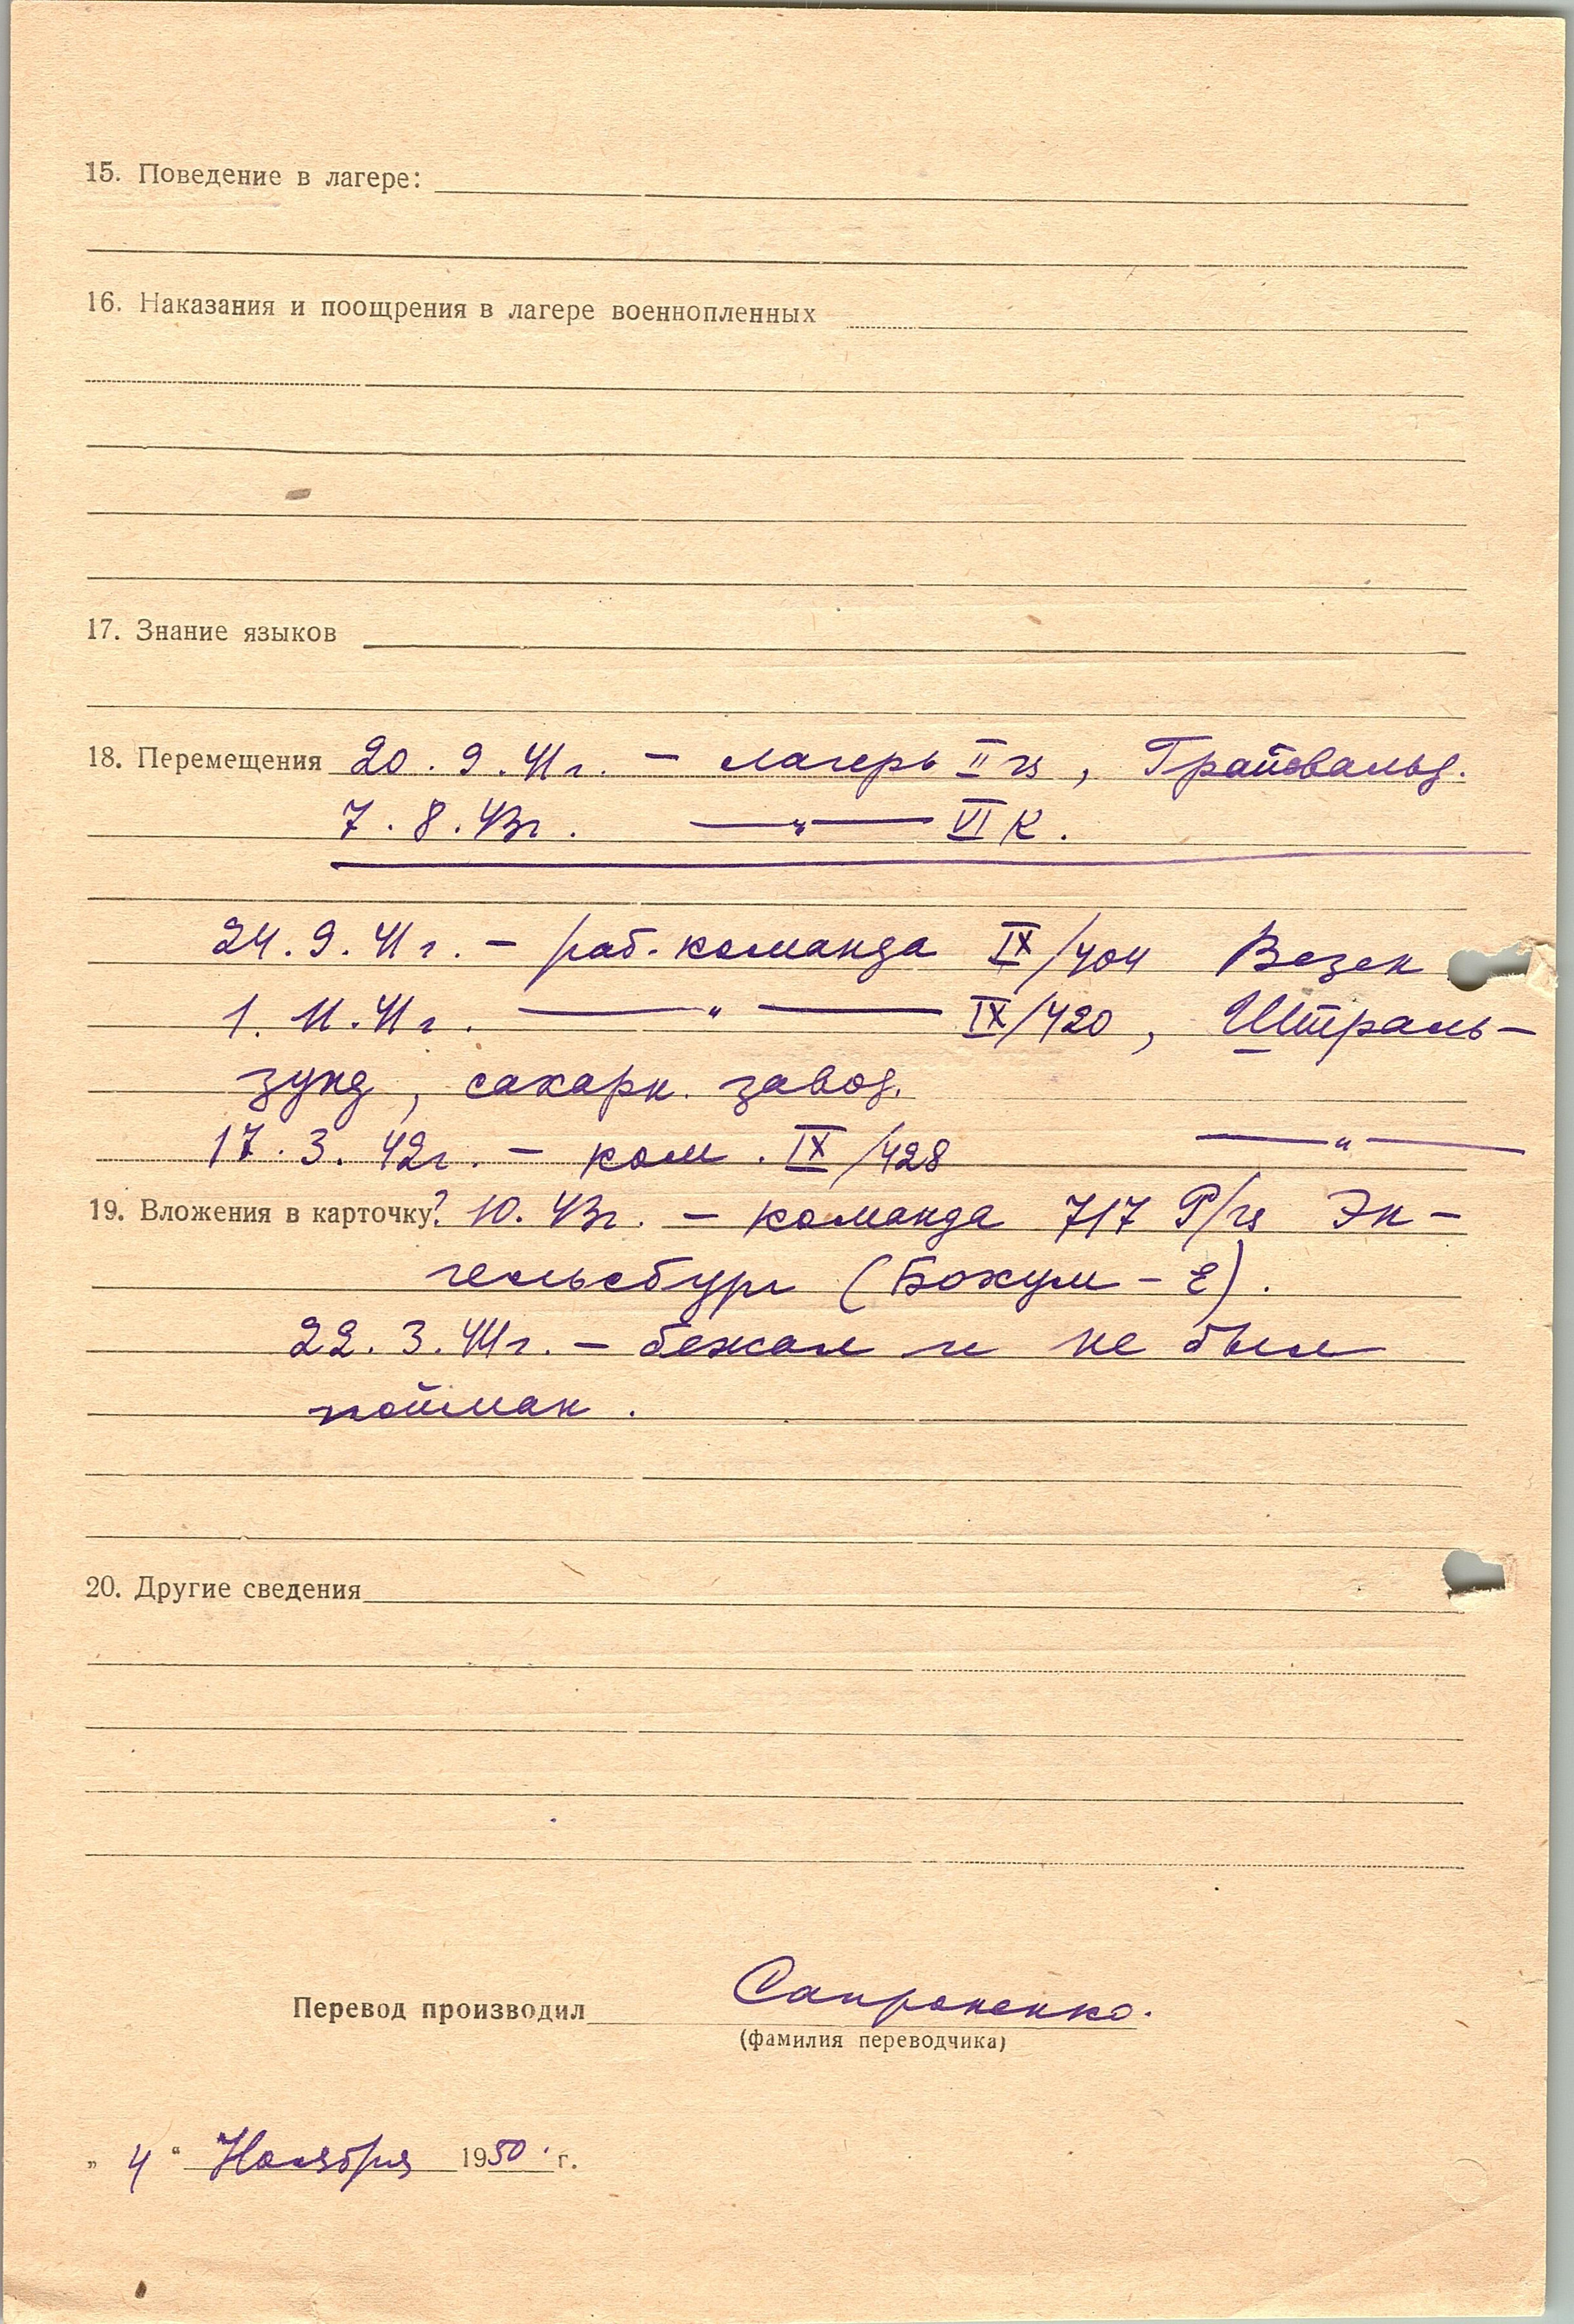 15. Поведение в лагере:
16. Наказания и поощрения в лагере военнопленных
17. Знание языков
18. Перемещения 20.9.41г. — лагерь II ц, Грайсвальд.
7.8.43г. —„— VI К.
24.9.41г. — раб. команда IX/404 Везен
1.11.41г. —„— IX/420, Штраль-
зунд, сахарн. завод.
17.3.42г. — ком. IX/428 —„—
19. Вложения в карточку ?.10.43г. — команда 717 Р/ц Эн-
гельсбург (Бохум-Е).
22.3.44г. — бежал и не был
пойман.
20. Другие сведения
Перевод производил Сапроненко.
(фамилия переводчика)
„ 4 “ Ноября 1950 г.